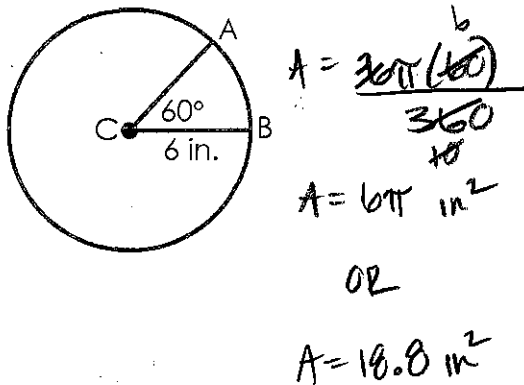 A
60°
C
B
6 in.
6
A = 36π(60)
360
10
A = 6π in²
OR
A = 18.8 in²